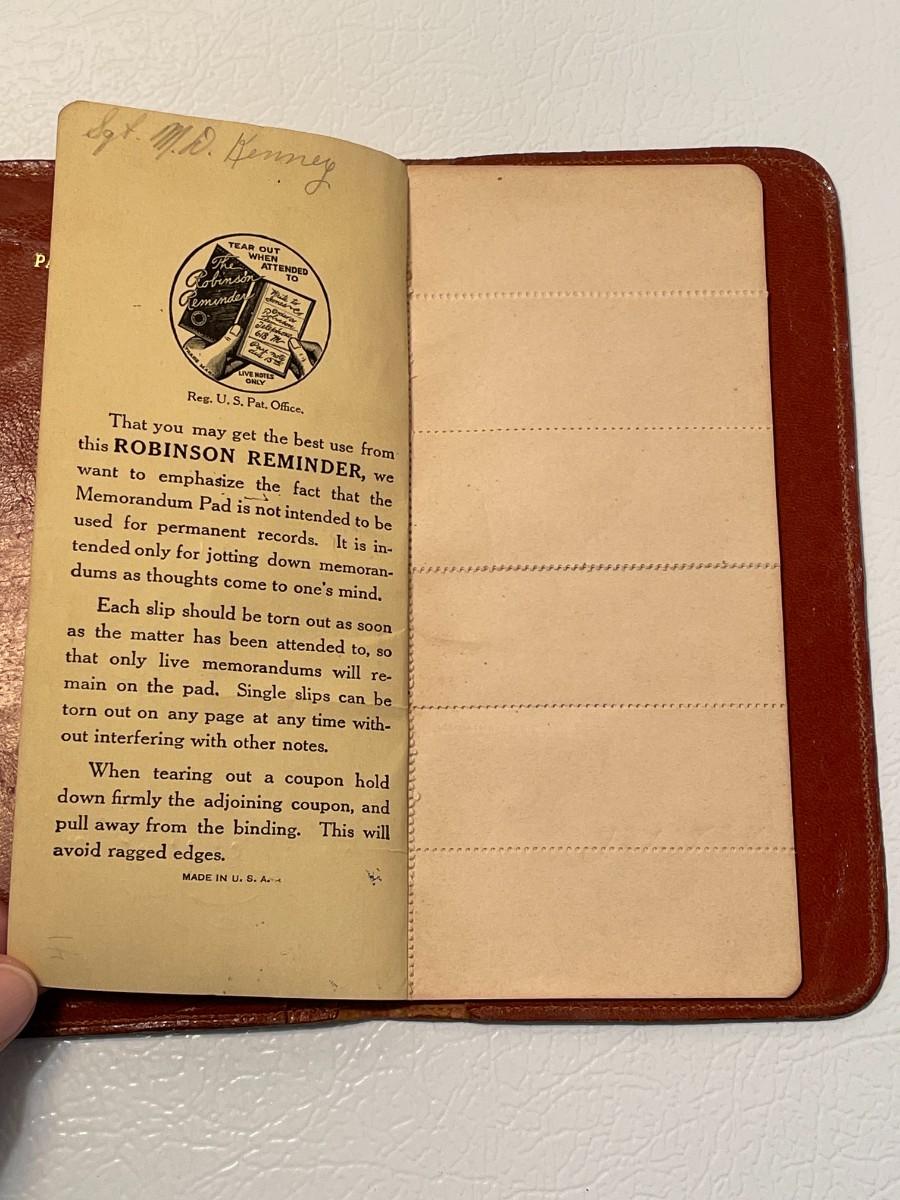 Sgt. M.D. Kenney
PA
TEAR OUT
WHEN
ATTENDED
TO
The
Robinson
Reminder
Write to
Telephone
618 M
Pay note
TRADE MARK
LIVE NOTES
ONLY
Reg. U. S. Pat. Office.
That you may get the best use from
this ROBINSON REMINDER, we
want to emphasize the fact that the
Memorandum Pad is not intended to be
used for permanent records. It is in-
tended only for jotting down memoran-
dums as thoughts come to one's mind.
Each slip should be torn out as soon
as the matter has been attended to, so
that only live memorandums will re-
main on the pad. Single slips can be
torn out on any page at any time with-
out interfering with other notes.
When tearing out a coupon hold
down firmly the adjoining coupon, and
pull away from the binding. This will
avoid ragged edges.
MADE IN U. S. A.